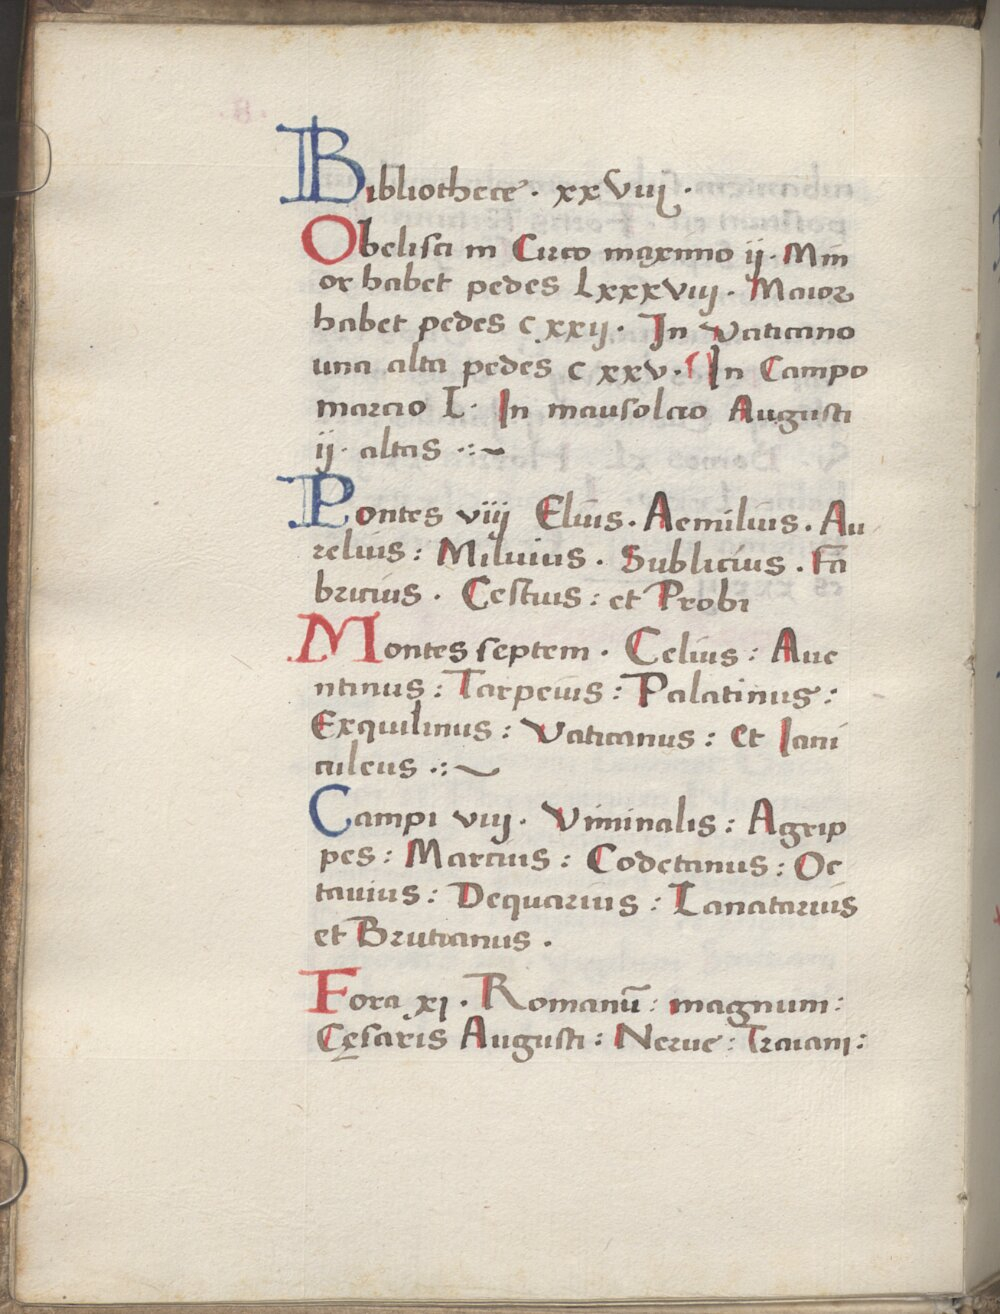 Bibliothece · xxviij ·
Obelisci in Circo maximo ij · Min
or habet pedes Lxxxviij · Maior
habet pedes cxxij · In vaticano
una alta pedes cxxv · In Campo
marcio L · In mausoleo Augusti
ij · altas ·:~
Pontes viij Elius · Aemilius · Au
relius : Miluius · Sublicius · Fa
bricius · Cestius : et Probi
Montes septem · Celius : Aue
ntinus : Tarpeius : Palatinus :
Exquilinus : Vaticanus : et Iani
culeus ·:~
Campi viij · Viminalis : Agrip
pes : Marcius : Codetanus : Oc
tauius : Dequarius : Lanatarius
et Brutianus ·
Fora xj · Romanū : magnum :
Cęsaris Augusti : Nerue : Traiani :